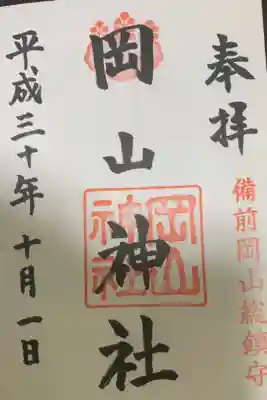 奉拝
備前岡山総鎮守
岡山神社
岡山神社
平成三十年十月一日